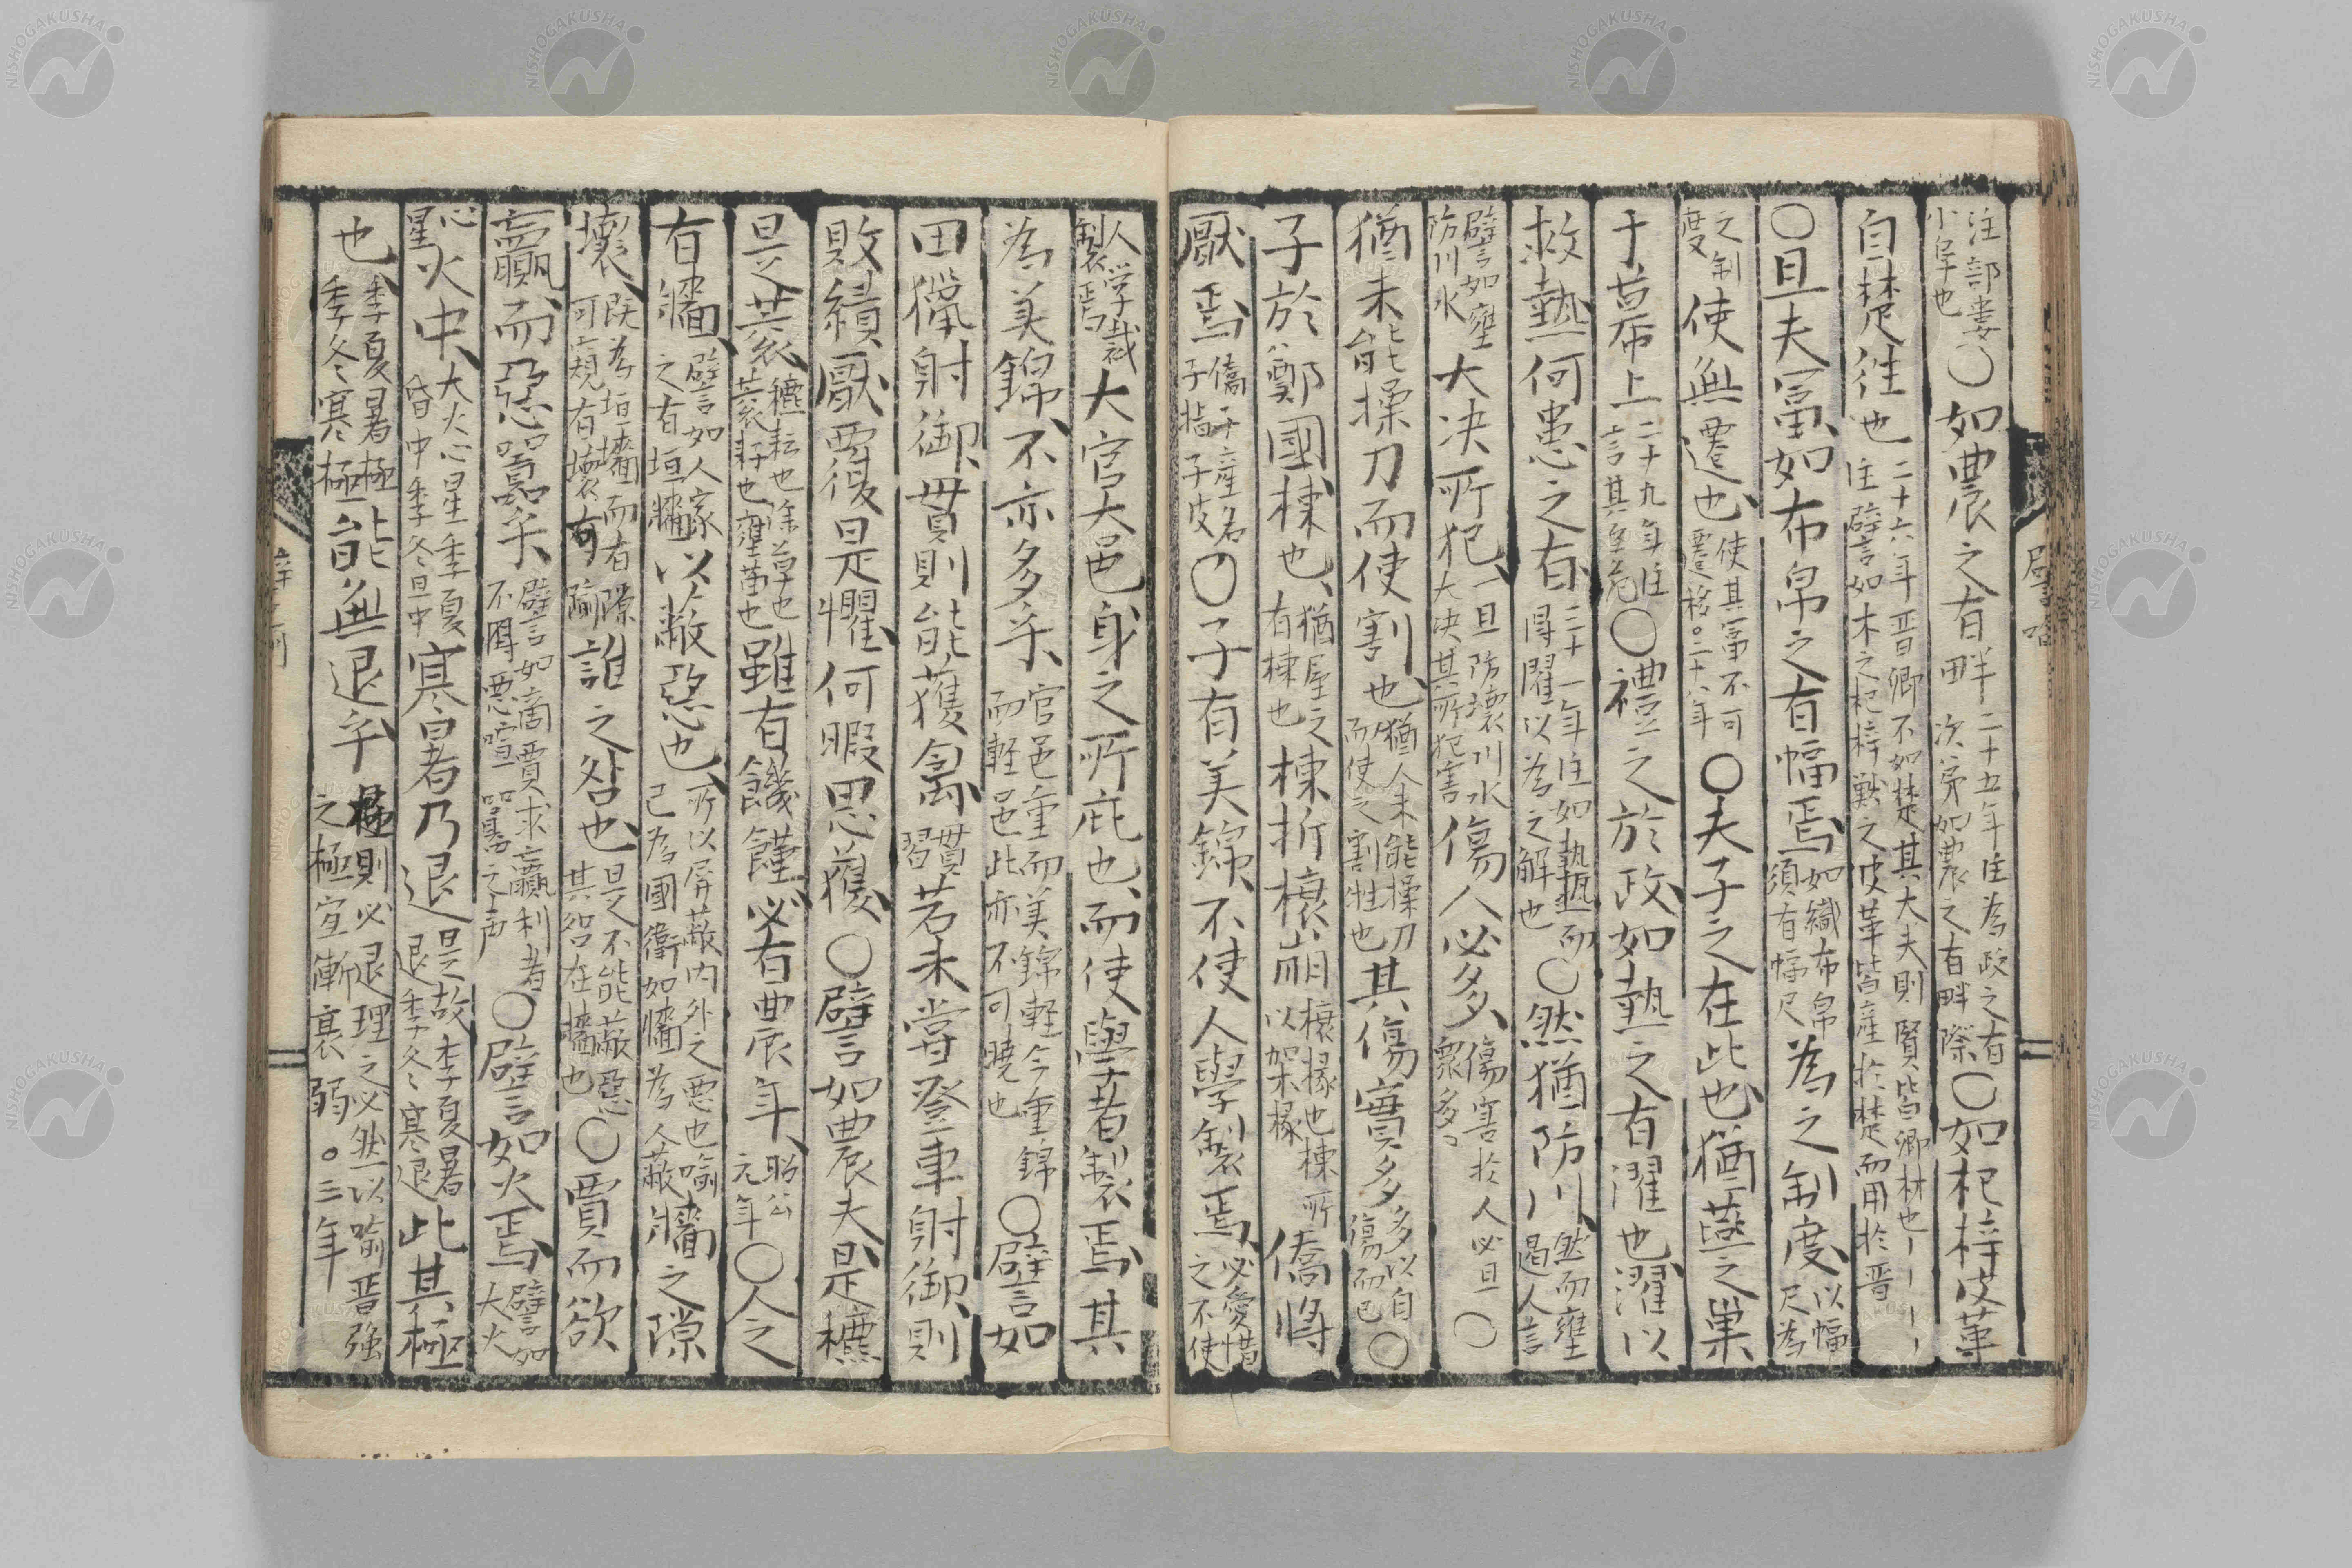 注部婁小阜也○如農之有畔二十五年注為政之有次第如農之有畔際○如杞梓皮革
自楚徃也二十六年晋卿不如楚其大夫則賢皆卿材也注譬言如木之杞梓獣之皮革皆産於楚而用於晋
○且夫富如布帛之有幅焉如織布帛須有幅尺為之制度以幅尺為
之制度使無遷也使其富不可遷移○二十八年○夫子之在此也猶燕之巣
于幕上二十九年注言其至危○禮之於政如熱之有濯也濯以
救熱何患之有三十一年注如執熱而得濯以為之解也○然猶防川然而壅遏人言
譬如壅防川水大决所犯一旦防壊川水大决其所犯害傷人必多傷害於人必且衆多○
猶未能操刀而使割也猶人未能操刀而使之割牲也其傷實多多以自傷而已○
子於鄭國棟也猶屋之有棟也棟折榱崩榱椽也棟所以架椽僑將
厭焉僑子産名子指子皮○子有美錦不使人學製焉必愛惜之不使
人学裁製焉大官大邑身之所庇也而使學者製焉其
為美錦不亦多乎官邑重而美錦軽今重錦而軽邑此亦不可曉也○譬如
田獵射御貫則能獲禽貫習若未嘗登車射御則
敗績厭覆是懼何暇思獲○譬如農夫是穮
是蓘穮耘也除草也蓘耔也壅苗也雖有饑饉必有豊年昭公元年○人之
有牆譬如人家之有垣牆以蔽惡也所以屏蔽内外之悪也喩己為國衛如牆為人蔽牆之隙
壊既為垣墻而有隙可窺有壊可踰誰之咎也是不能蔽惡其咎在牆也○賈而欲
贏而惡嚚乎譬如商賈求贏利者不得悪喧嚚之声○譬如火焉譬如大火
心星火中大火心星季夏昏中季冬旦中寒暑乃退是故季夏暑退季冬寒退此其極
也季夏暑極季冬寒極能無退乎極則必退理之必然以喻晋強之極宜漸衰弱○三年